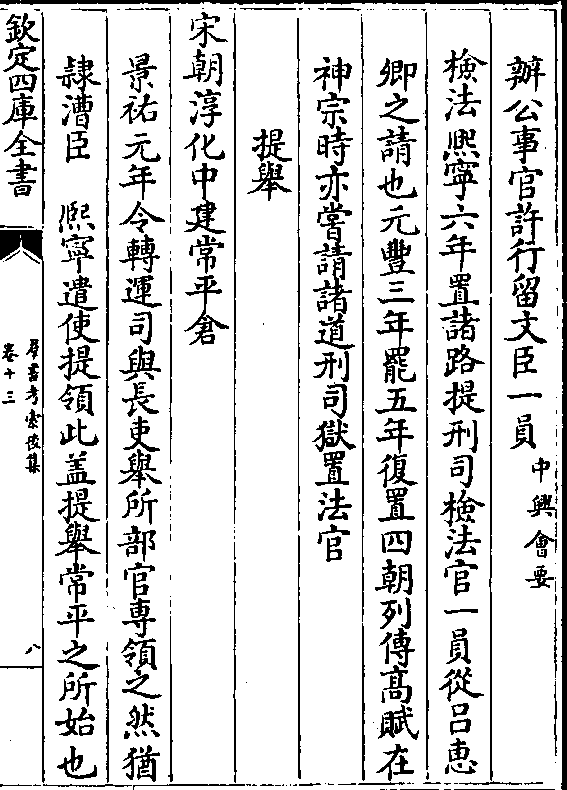 辦公事官許行留文臣一員中興會要
檢法熈寧六年置諸路提刑司檢法官一員從吕恵
卿之請也元豐三年罷五年復置四朝列傳髙賦在
神宗時亦嘗請諸道刑司獄置法官
提舉
宋朝淳化中建常平倉
景祐元年令轉運司與長吏舉所部官専領之然猶
隷漕臣　熈寧遣使提領此葢提舉常平之所始也
欽定四庫全書
羣書考索後集
卷十三
八